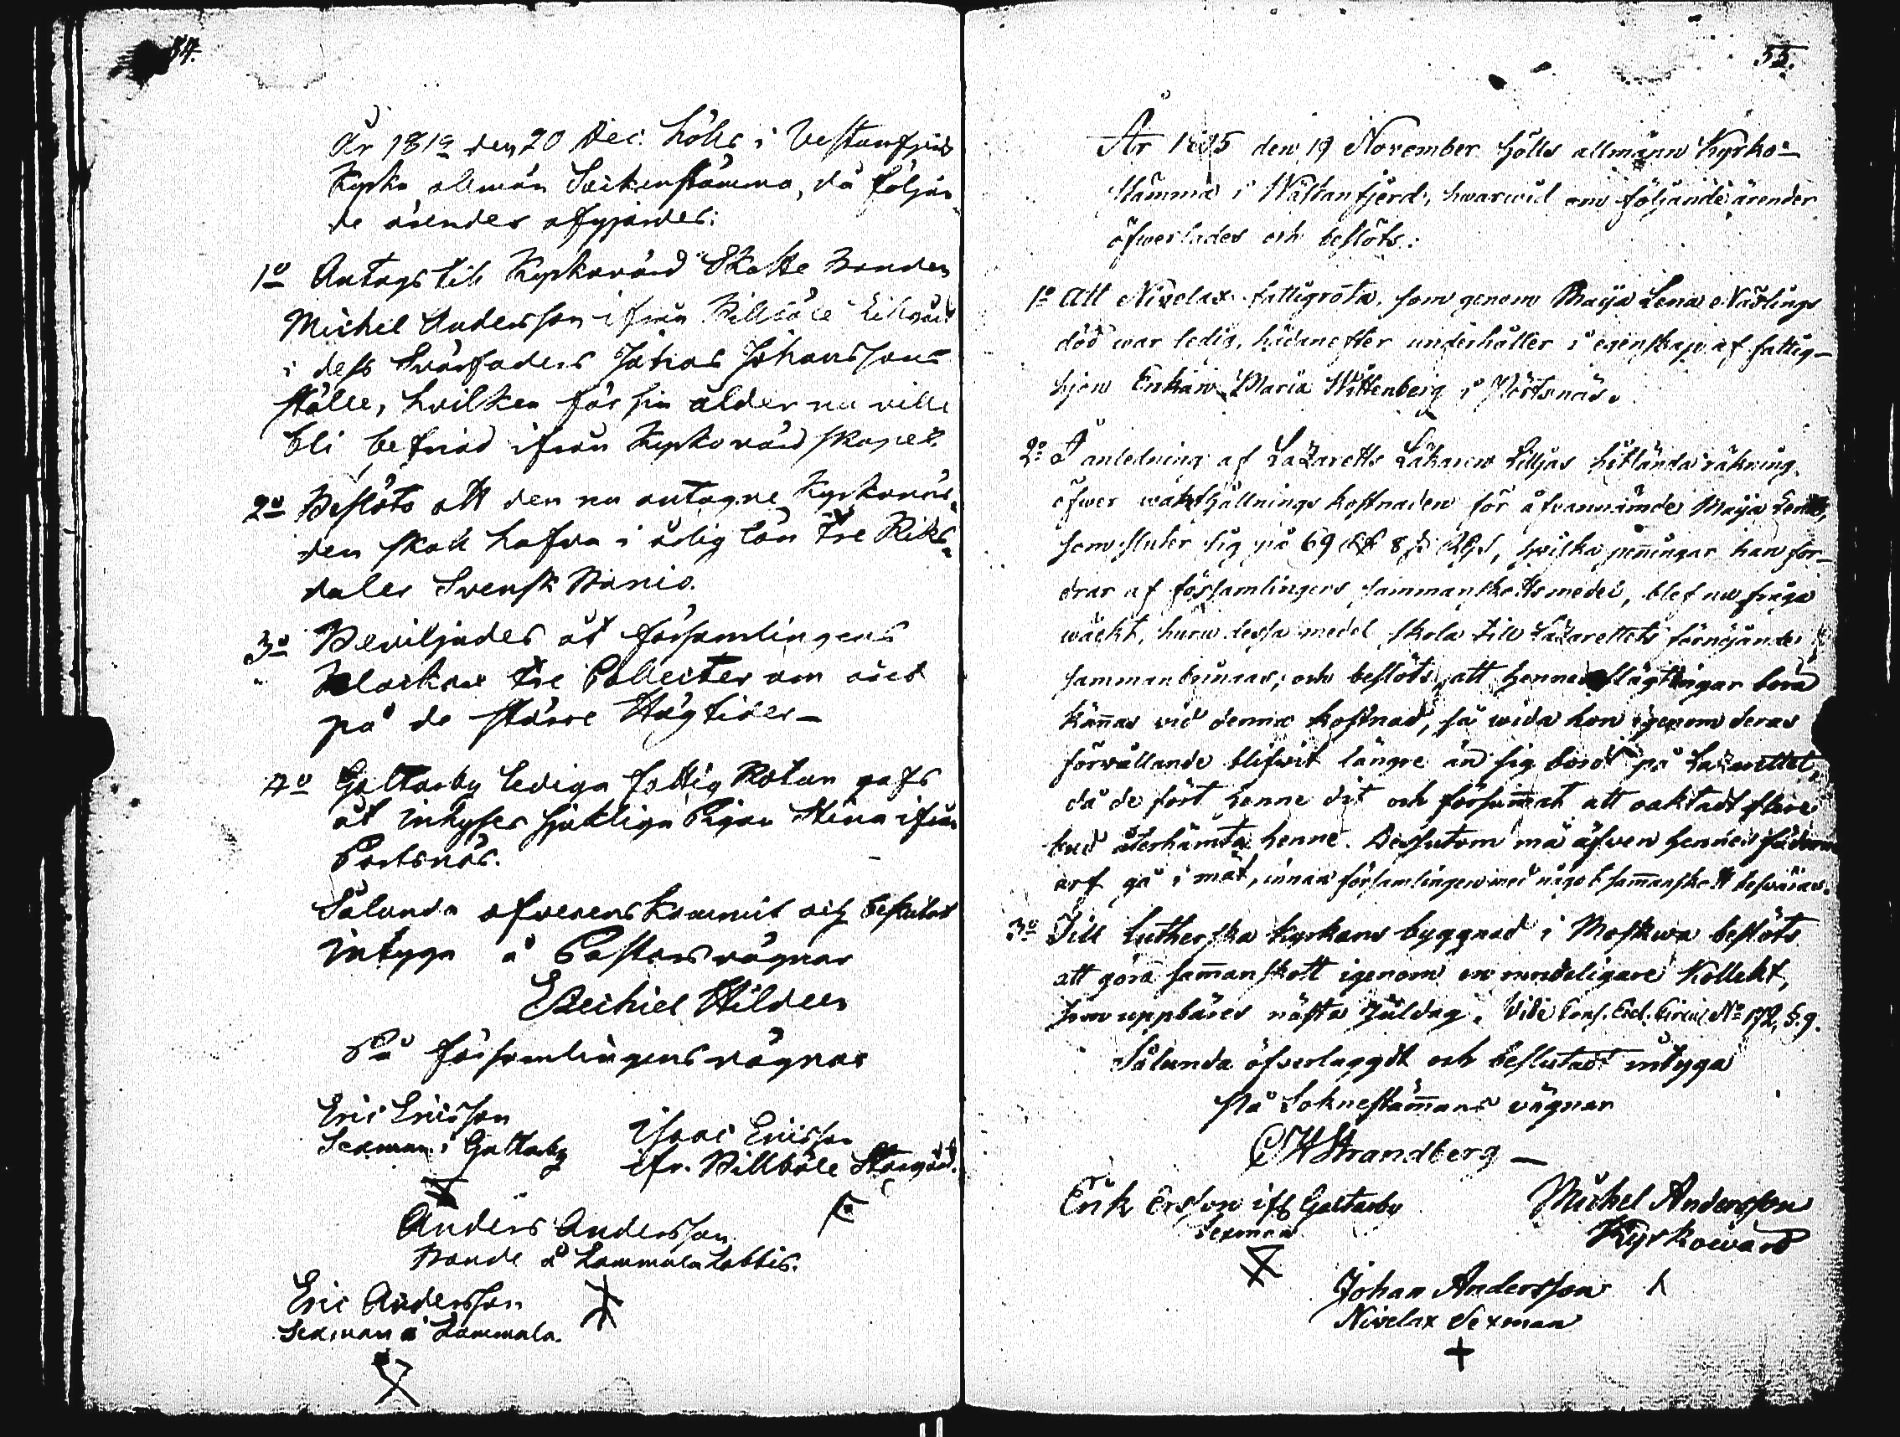 54.
År 1819 den 20 Dec. hölls i Vestanfjerds
Kyrko allmän Sockenstämma, då följan
de ärender afgjordes:
1o Antogs till Kyrkovärd Skatte Bonden
Michel Andersson ifrån Billböle Lillgård
i dess Svärfaders Johansons
ställe, hvilken för sin ålder nu ville
bli befriad ifrån Kyrkovärdskapet.
2o Beslöts att den nu antagne Kyrkovär
den skall hafva i årlig lön Tre Riks
daler Svensk Banco.
3o Beviljades åt församlingens
Klockare tre Collecter om året
på de större Högtider
4o Galtarby lediga fattig Rotan gafs
åt Inhyses sjukliga Pigan Stina ifrån
Pörtsnäs.
Sålunda öfverenskommit och beslutat
intyga å Pastors vägnar
Ezechiel Hildeen
På församlingens vägnar
Eric Ericsson
Sexman i Galtarby
Isaac Ericsson
ifr. Billböle Storgård.
Anders Andersson
Bonde å Lammala Labbis.
Eric Andersson
Sexman å Lammala.
55.
År 1825 den 19 November hölls allmänn Kyrko-
stämma i Wästanfjerd, hwarwid om följande ärender
öfwerlades och beslöts:
1o Att Nivelax fattigrota, som genom Maija Lena Näslings
död war ledig, hädanefter underhåller i egenskap af fattig-
hjon Enkan Maria Wittenberg i Pörtsnäs.
2o I anledning af Lazaretts Läkaren Lilljas hitsända räkning
öfwer underhållnings kostnaden för åfvannämde Maija Lena,
som sluter sig på 69 8 hvilka penningar han for-
drar af församlingens sammanskottsmedel, blef nu fråga
wäckt, huru dessa medel skola till Lazarettets förnöjande
sammanbringas; och beslöts, att hennes slägtingar böra
kännas vid denna kostnad, så wida hon igenom deras
förwållande blifwit längre än sig bort på Lazarettet,
då de fört henne dit och försummat att oaktadt flere
bud återhämta henne. Dessutom må äfven hennes fäderne
arf gå i mät, innan församlingen med något sammanskott besväras.
3o Till Lutherska kyrkans byggnad i Moskwa beslöts
att göra sammanskott igenom en Kollekt,
som uppbäres nästa Juldag. Vide Cons. Eccl. Circul. No 172, §. 9.
Sålunda öfverlaggdt och beslutadt intyga
På Soknestämmans vägnar
C H Strandberg
Erik Ersson ifr Galtarby
sexman
Michel Andersson
Kyrkowärd
Johan Andersson
Nivelax Sexman